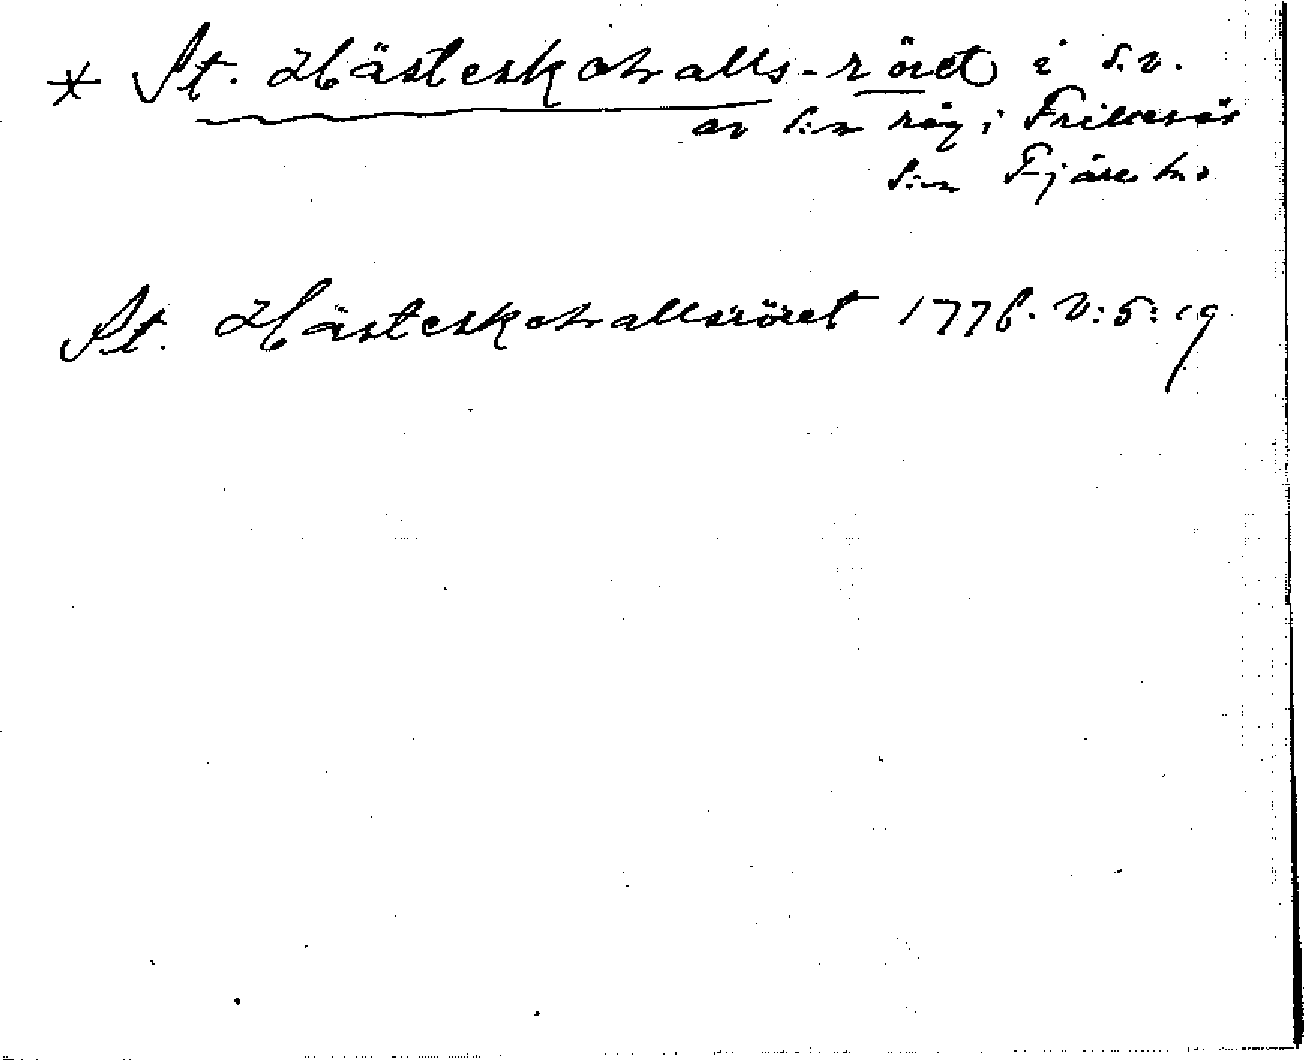 * St. Hästeskohvalls-röret i S.v.
av S:n råg i Frillesås
S:n Fjäre hd
St. Hästeskohvallsröret 1776. V:5:19